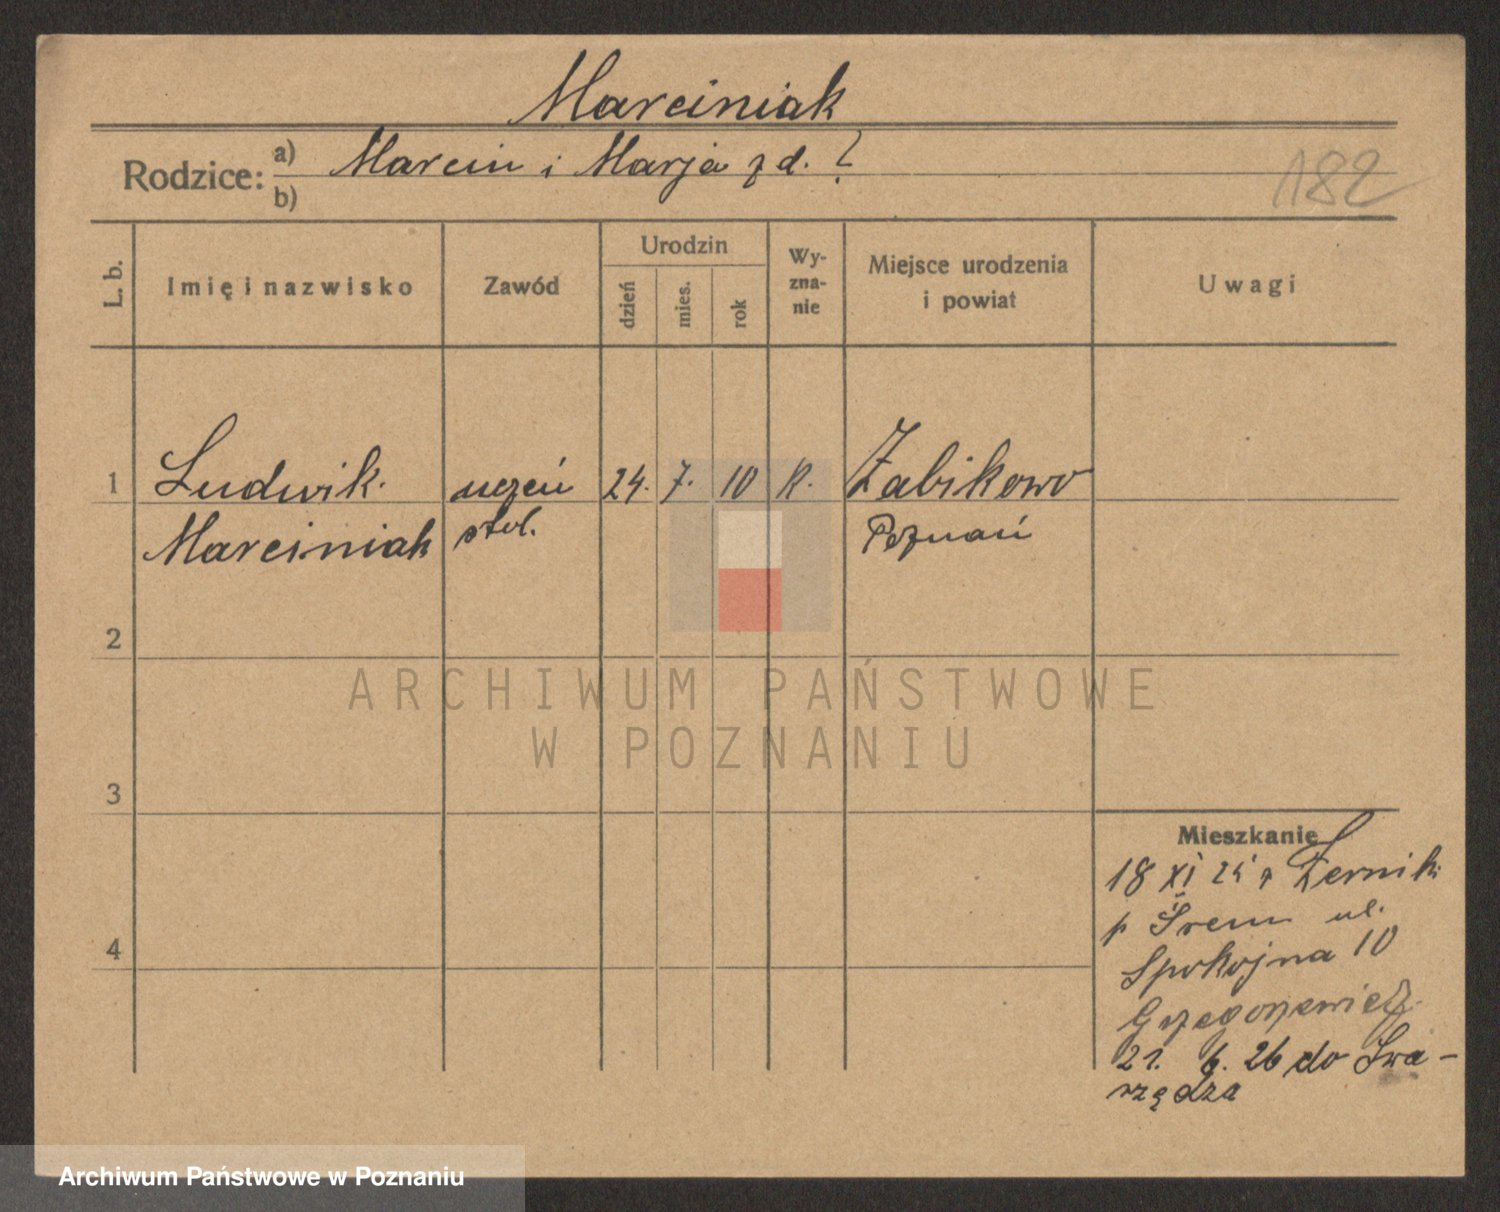 Marciniak
Rodzice: a) Marcin i Marja z d. ?
b)
182
L. b. Imię i nazwisko Zawód Urodzin dzień mies. rok Wy-zna-nie Miejsce urodzenia i powiat Uwagi
1 Ludwik uczeń 24. 7. 10 K. Żabikowo
Marciniak stol. Poznań
2
3
4
Mieszkanie
18 XI 24 z Żernik
p Śrem ul.
Spokojna 10
Grzegorzewicz
21. 6. 26 do Swa-
rzędza
ARCHIWUM PAŃSTWOWE
W POZNANIU
Archiwum Państwowe w Poznaniu